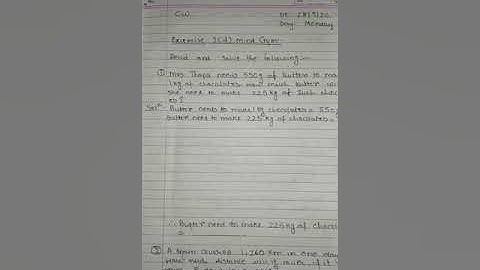 CW
Day: Monday
Exercise 3(d) mind Gym
Read and solve the following:-
① Mrs Thapa needs 550g of butter to
1kg of chocolates how much butter
she need to make 225kg of such
Solⁿ Butter needs to make 1kg chocolates = 550g
Butter need to make 225kg of chocolates =
∴ Butter need to make 225kg of
=
② A train covered 11,260 km in one day
how much distance will it cover if it